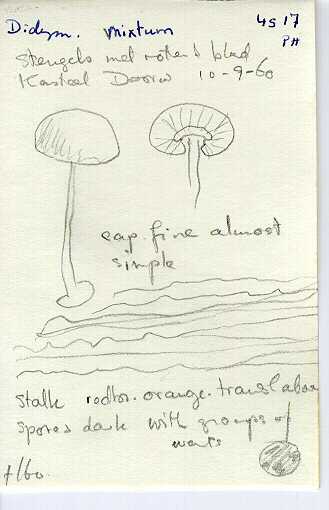 Didym. mixtum 4517
PH
Stengels met rottend blad
Kasteel Doorn 10-9-60
cap. fine almost
simple
Stalk redbr. orange. transl above
Spores dark with groups of
warts